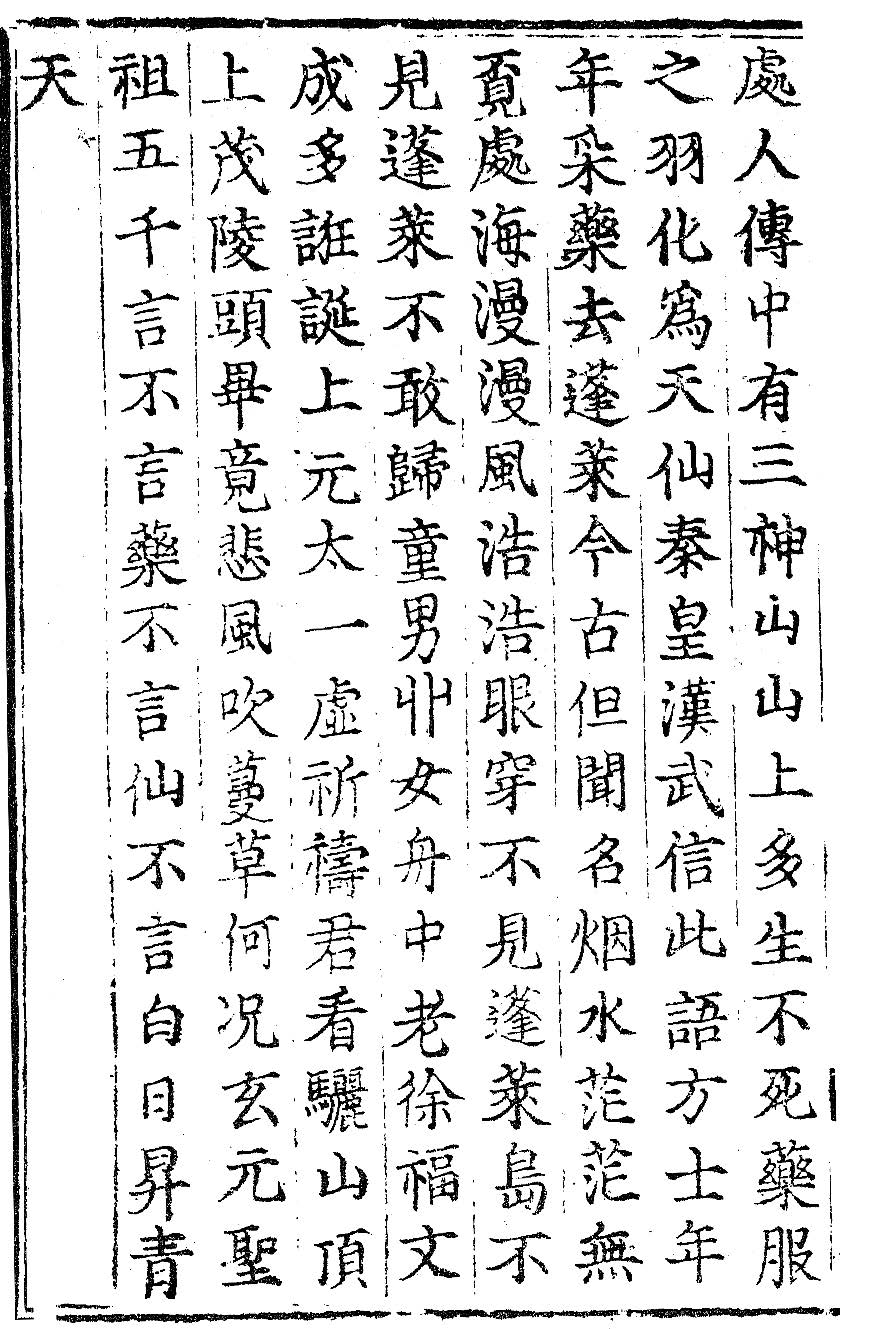 處人傳中有三神山山上多生不死藥服
之羽化爲天仙秦皇漢武信此語方士年
年采藥去蓬萊今古但聞名烟水茫茫無
覔處海漫漫風浩浩眼穿不見蓬萊島不
見蓬萊不敢歸童男丱女舟中老徐福文
成多誑誕上元太一虛祈禱君看驪山頂
上茂陵頭畢竟悲風吹蔓草何况玄元聖
祖五千言不言藥不言仙不言白日昇青
天